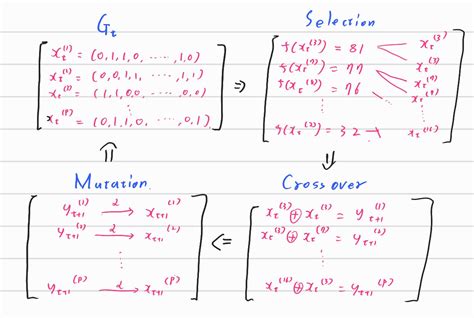 G_t
x_t^(1) = (0,1,1,0, ⋯⋯, 1,0)
x_t^(1) = (0,0,1,1, ⋯, 1,1)
= (1,1,0,0, ⋯, 0,0)
⋮
x_t^(P) = (0,1,1,0, ⋯, 0,1)
⇒
Selection
f(x_t^(3)) = 81 x_t^(3)
f(x_t^(9)) = 77 x_t^(3)
f(x_t^(9)) = 76 x_t^(9)
⋮
= 32 ⊣
⇓
Cross over
x_t^(3) ⊕ x_t^(3) = y_{t+1}^(1)
x_t^(3) ⊕ x_t^(9) = y_{t+1}^(2)
⋮
⊕ x_t^(3) = y_{t+1}^(P)
<=
Mutation
y_{t+1}^(1) → x_{t+1}^(1)
y_{t+1}^(2) → x_{t+1}^(2)
⋮
y_{t+1}^(P) → x_{t+1}^(P)
⇑